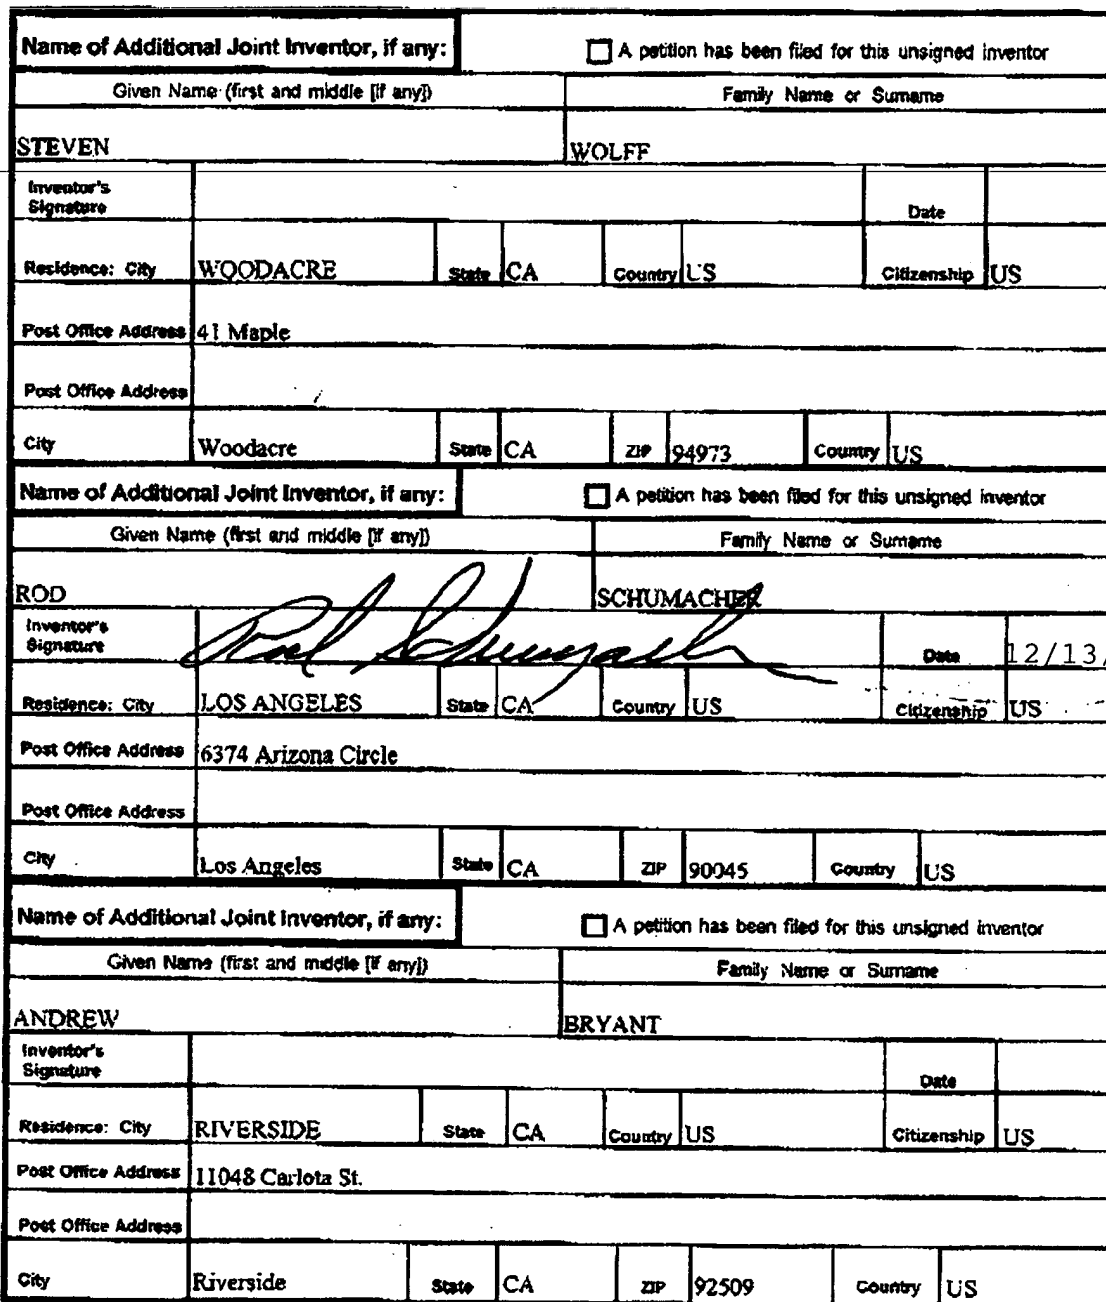 Name of Additional Joint Inventor, if any: A petition has been filed for this unsigned inventor
Given Name (first and middle [if any]) Family Name or Surname
STEVEN WOLFF
Inventor's Signature Date
Residence: City WOODACRE State CA Country US Citizenship US
Post Office Address 41 Maple
Post Office Address
City Woodacre State CA ZIP 94973 Country US
Name of Additional Joint Inventor, if any: A petition has been filed for this unsigned inventor
Given Name (first and middle [if any]) Family Name or Surname
ROD SCHUMACHER
Inventor's Signature Rod Schumacher Date 12/13/
Residence: City LOS ANGELES State CA Country US Citizenship US
Post Office Address 6374 Arizona Circle
Post Office Address
City Los Angeles State CA ZIP 90045 Country US
Name of Additional Joint Inventor, if any: A petition has been filed for this unsigned inventor
Given Name (first and middle [if any]) Family Name or Surname
ANDREW BRYANT
Inventor's Signature Date
Residence: City RIVERSIDE State CA Country US Citizenship US
Post Office Address 11048 Carlota St.
Post Office Address
City Riverside State CA ZIP 92509 Country US